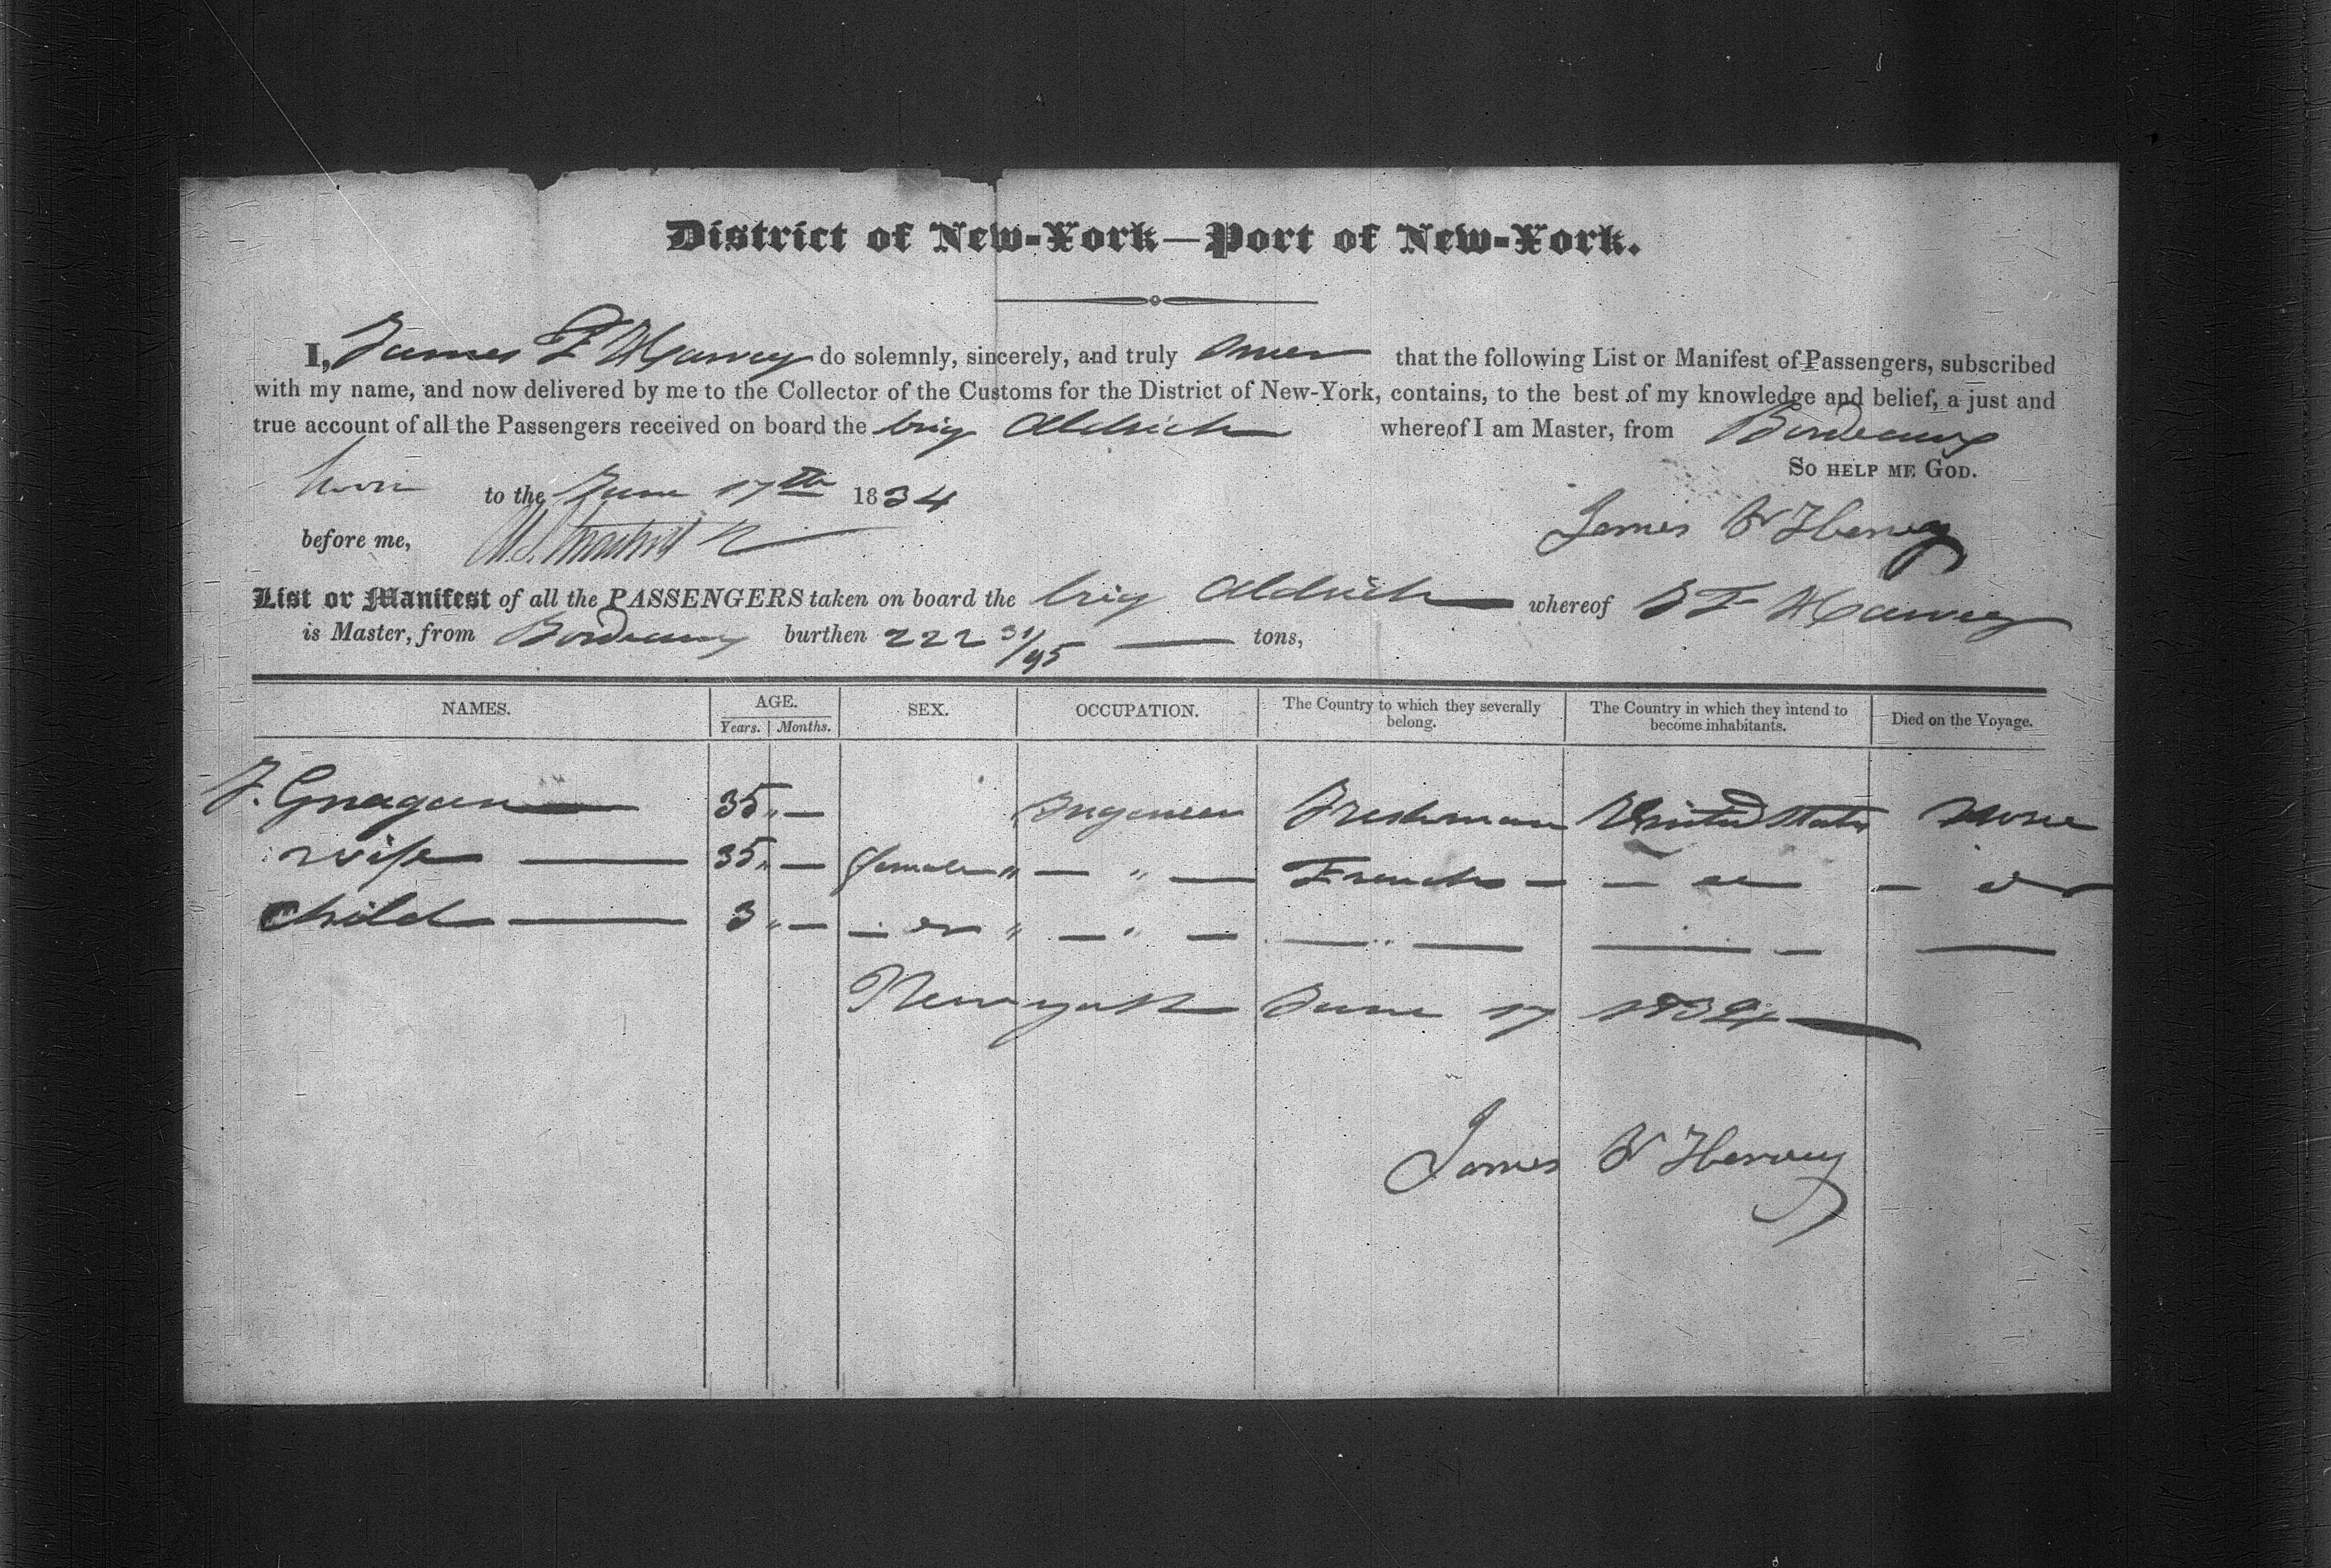 District of New-York—Port of New-York.
I, James F Harvey do solemnly, sincerely, and truly that the following List or Manifest of Passengers, subscribed
with my name, and now delivered by me to the Collector of the Customs for the District of New-York, contains, to the best of my knowledge and belief, a just and
true account of all the Passengers received on board the brig Aldrich whereof I am Master, from Bordeaux
So help me God.
to the June 17th 1834
before me,
James W Hervey
List or Manifest of all the PASSENGERS taken on board the brig Aldrich whereof J F Harvey
is Master, from Bordeaux burthen 222 31/95 — tons,
NAMES. AGE. SEX. OCCUPATION. The Country to which they severally belong. The Country in which they intend to become inhabitants. Died on the Voyage.
Years. Months.
J. 35 " — United States None
wife — 35 " — female " — " — French — — do — do
child — 3 " — — do " — " — — " — — — —
New york June 17 1834
James W Hervey